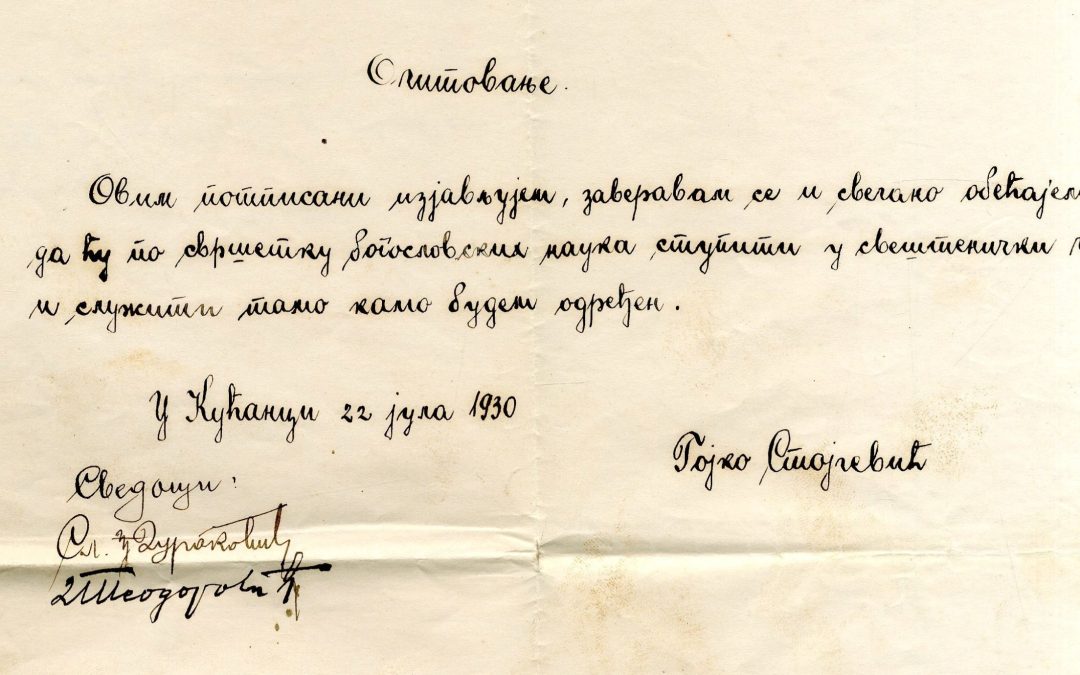 Очитовање.
Овим потписани изјављујем, заверавам се и свечано обећајем
да ћу по свршетку богословских наука ступити у свештенички
и служити тамо камо будем одређен.
У Кућанци 22 јула 1930
Гојко Стојчевић
Сведоци:
Сл.
Теодоровић